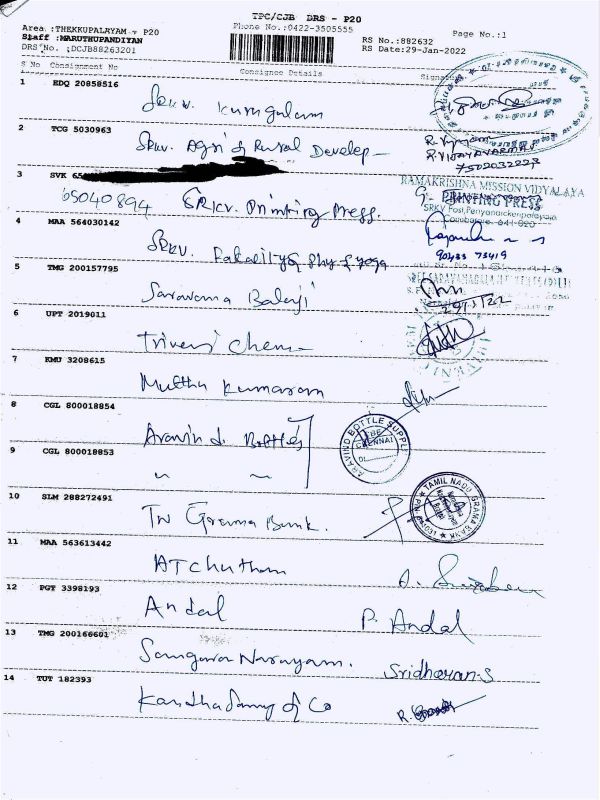 TPC/CJB DRS - P20
Area :THEKKUPALAYAM - P20
Phone No.:0422-3505555
Staff :MARUTHUPANDIYAN
RS No.:882632
Page No.:1
DRS No. :DCJB88263201
RS Date:29-Jan-2022
S No Consignment No
Consignee Details
Signature
1 EDQ 20858516
SRKV. Kurugulam
2 TCG 5030963
SRKV. Agri & Rural Develop -
R. Vijayarani
R.VIJAYARANI
7502032223
3 SVK 65
65040894 SRKV. Printing Press.
RAMAKRISHNA MISSION VIDYALAYA
PRINTING PRESS
SRKV Post, Periyanaickenpalayam
Coimbatore - 641 020
4 MAA 564030142
SRKV. Fakality of Phy & Yoga
90433 73419
5 TMG 200157795
Saravana Balaji
29/1/22
6 UPT 2019011
Triveni Chem
7 KMU 3208615
Muthu Kumaram
8 CGL 800018854
Aravind Bottles
ARAVIND BOTTLE SUPPLY
CHENNAI
9 CGL 800018853
" "
10 SLM 288272491
TN Grama Bank.
TAMIL NADU GRAMA BANK
11 MAA 563613442
ATchutham
12 PGT 3398193
Andal
P. Andal
13 TMG 200166601
Sanguva Narayam.
Sridharan.S
14 TUT 182393
Kandhasamy & Co
R.